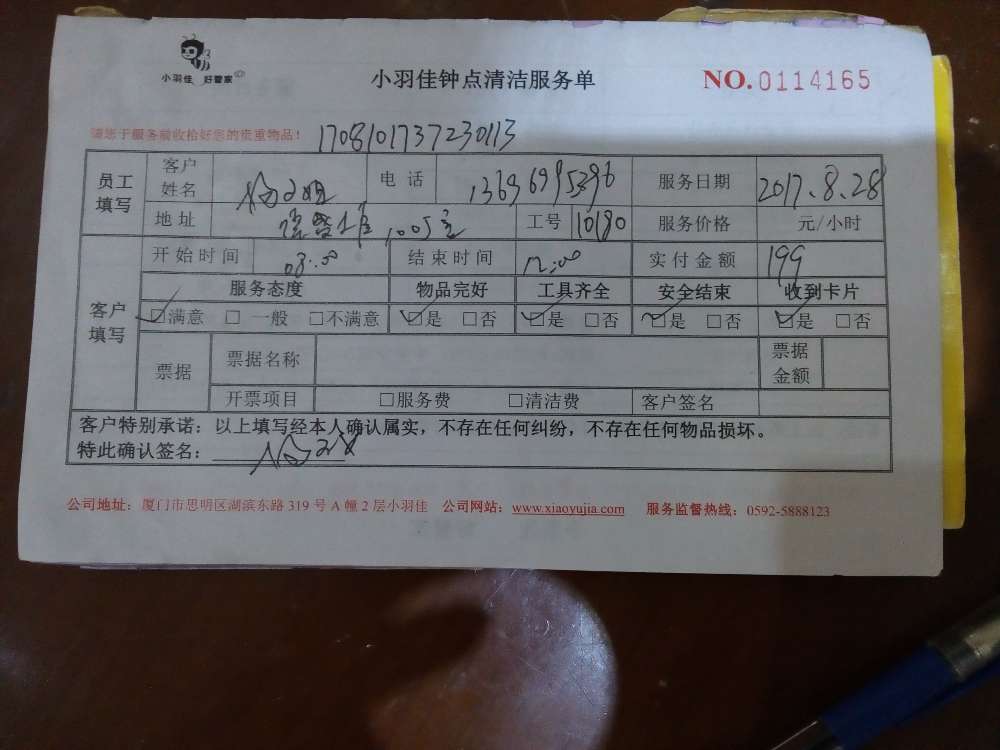 小羽佳 好管家
小羽佳钟点清洁服务单
NO.0114165
请您于服务前收拾好您的贵重物品！
1708101737230113
员工填写 客户姓名 杨小姐 电话 13696995396 服务日期 2017.8.28
地址 1005室 工号 10180 服务价格 元/小时
客户填写 开始时间 08:00 结束时间 12:00 实付金额 199
服务态度 物品完好 工具齐全 安全结束 收到卡片
☑满意 □一般 □不满意 ☑是 □否 ☑是 □否 ☑是 □否 ☑是 □否
票据 票据名称 票据金额
开票项目 □服务费 □清洁费 客户签名
客户特别承诺：以上填写经本人确认属实，不存在任何纠纷，不存在任何物品损坏。
特此确认签名：
公司地址：厦门市思明区湖滨东路 319 号 A 幢 2 层小羽佳 公司网站：www.xiaoyujia.com 服务监督热线：0592-5888123